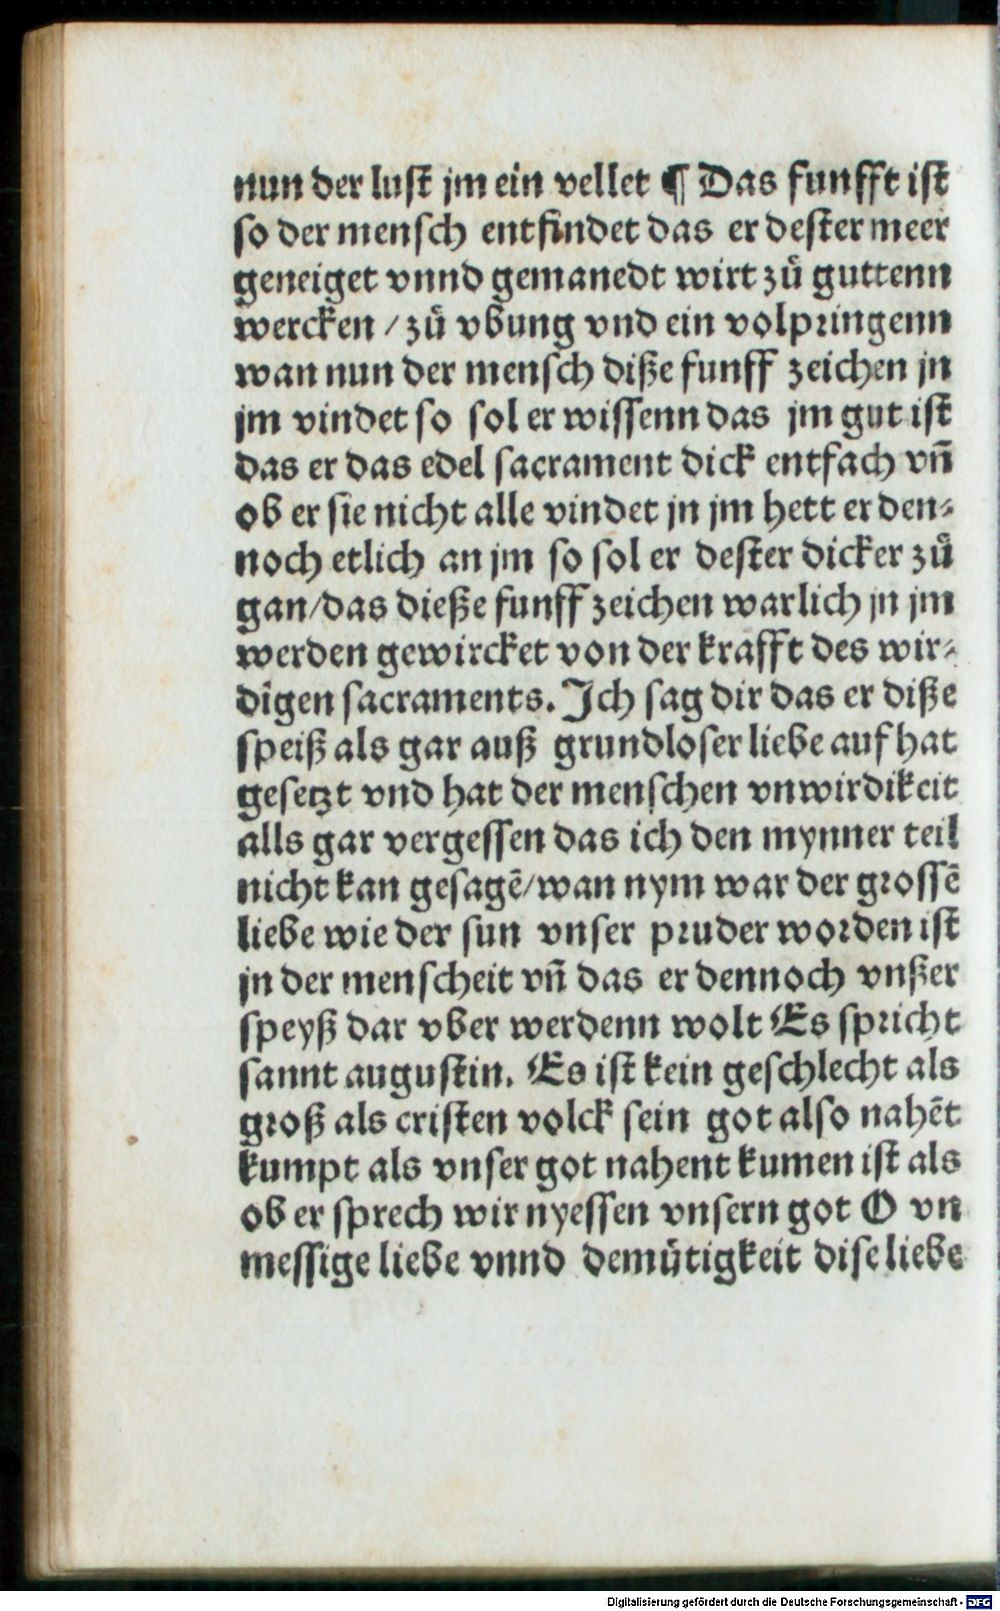 nun der luſt jm ein vellet ¶ Das funfft iſt
ſo der menſch entfindet das er deſter meer
geneiget vnnd gemanedt wirt zů guttenn
wercken / zů vbung vnd ein volpꝛingenn
wan nun der menſch diße funff zeichen jn
jm vindet ſo ſol er wiſſenn das jm gut iſt
das er das edel ſacrament dick entfach vn̄
ob er ſie nicht alle vindet jn jm hett er den⸗
noch etlich an jm ſo ſol er deſter dicker zů
gan/das dieße funff zeichen warlich jn jm
werden gewircket von der krafft des wir⸗
digen ſacraments. Ich ſag dir das er diße
ſpeiß als gar auß grundloſer liebe auf hat
geſetzt vnd hat der menſchen vnwirdikeit
alls gar vergeſſen das ich den mynner teil
nicht kan geſagē/wan nym war der gꝛoſſē
liebe wie der ſun vnſer pꝛuder woꝛden iſt
jn der menſcheit vn̄ das er dennoch vnßer
ſpeyß dar vber werdenn wolt Es ſpꝛicht
ſannt auguſtin. Es iſt kein geſchlecht als
gꝛoß als criſten volck ſein got alſo nahēt
kumpt als vnſer got nahent kumen iſt als
ob er ſprech wir nyeſſen vnſern got O vn
meſſige liebe vnnd demütigkeit diſe liebe
Digitalisierung gefördert durch die Deutsche Forschungsgemeinschaft - DFG